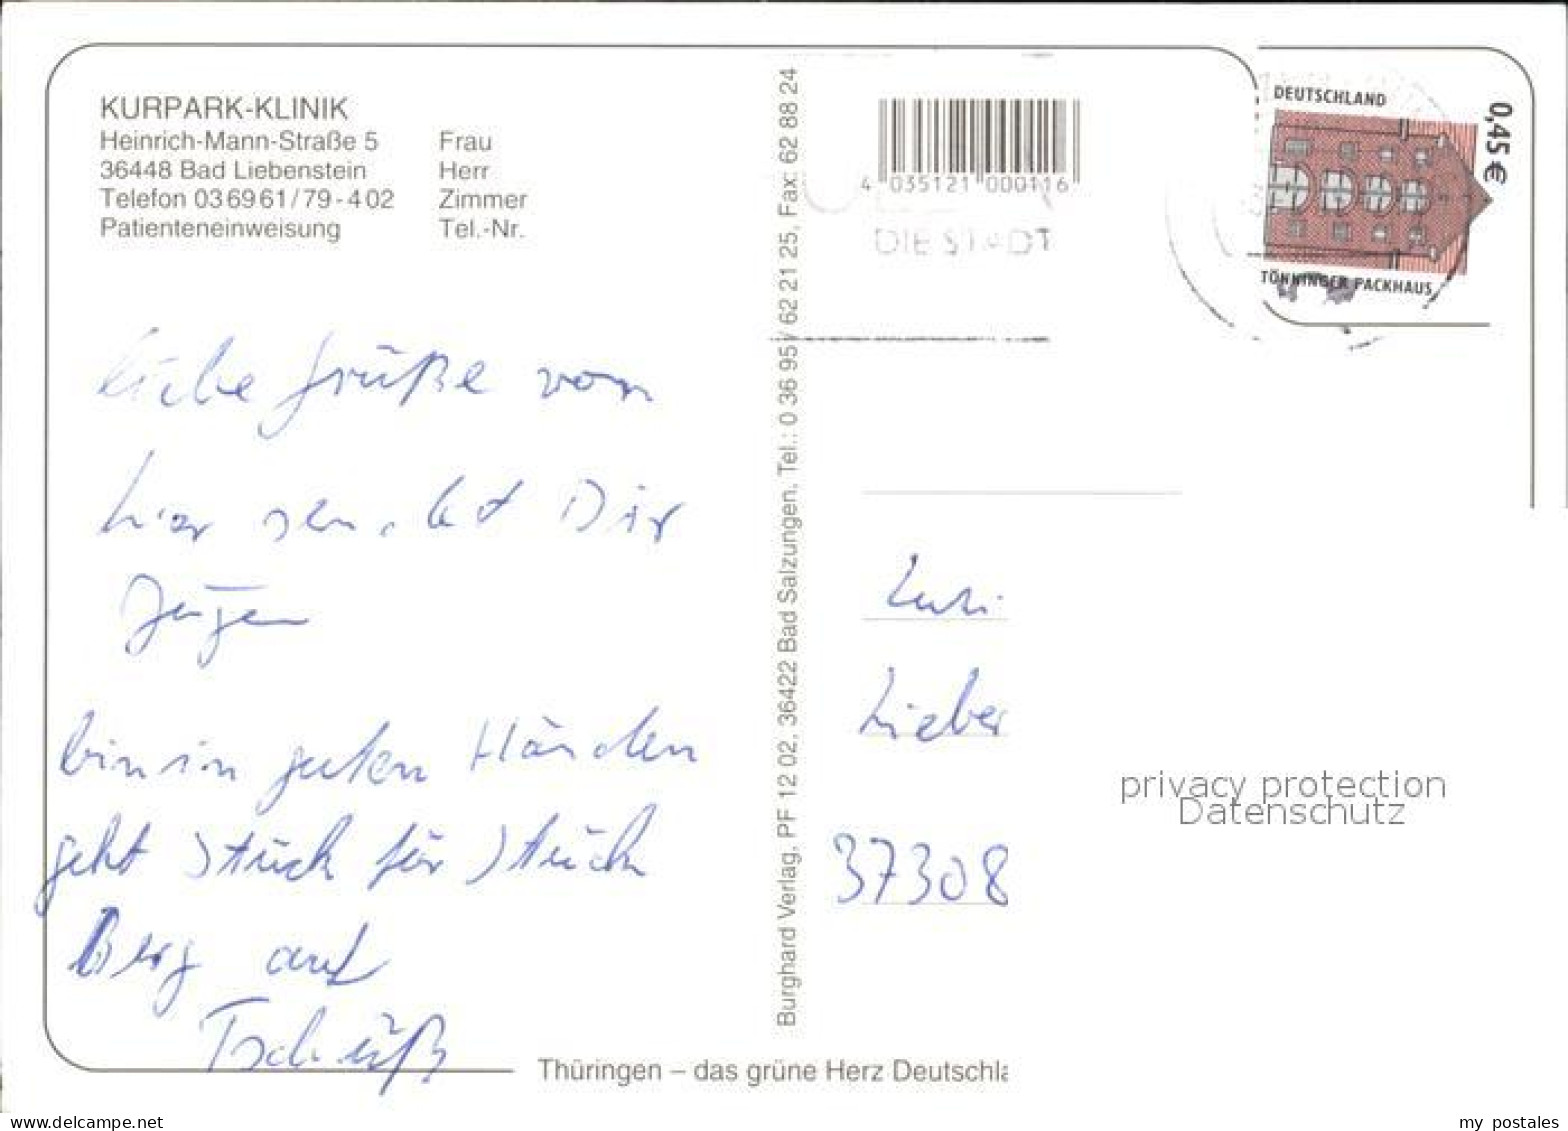 KURPARK-KLINIK
Heinrich-Mann-Straße 5 Frau
36448 Bad Liebenstein Herr
Telefon 03 69 61 / 79 - 4 02 Zimmer
Patienteneinweisung Tel.-Nr.
liebe Grüße von
hier sendet Dir
bin in guten Händen
geht Stück für Stück
Berg auf
Tschüß
Burghard Verlag, PF 12 02, 36422 Bad Salzungen, Tel.: 0 36 95 / 62 21 25, Fax: 62 88 24
4 035121 000116
DIE STADT
DEUTSCHLAND
0,45 €
TÖNNINGER PACKHAUS
Lieber
37308
privacy protection
Datenschutz
Thüringen – das grüne Herz Deutschla
www.delcampe.net
my postales